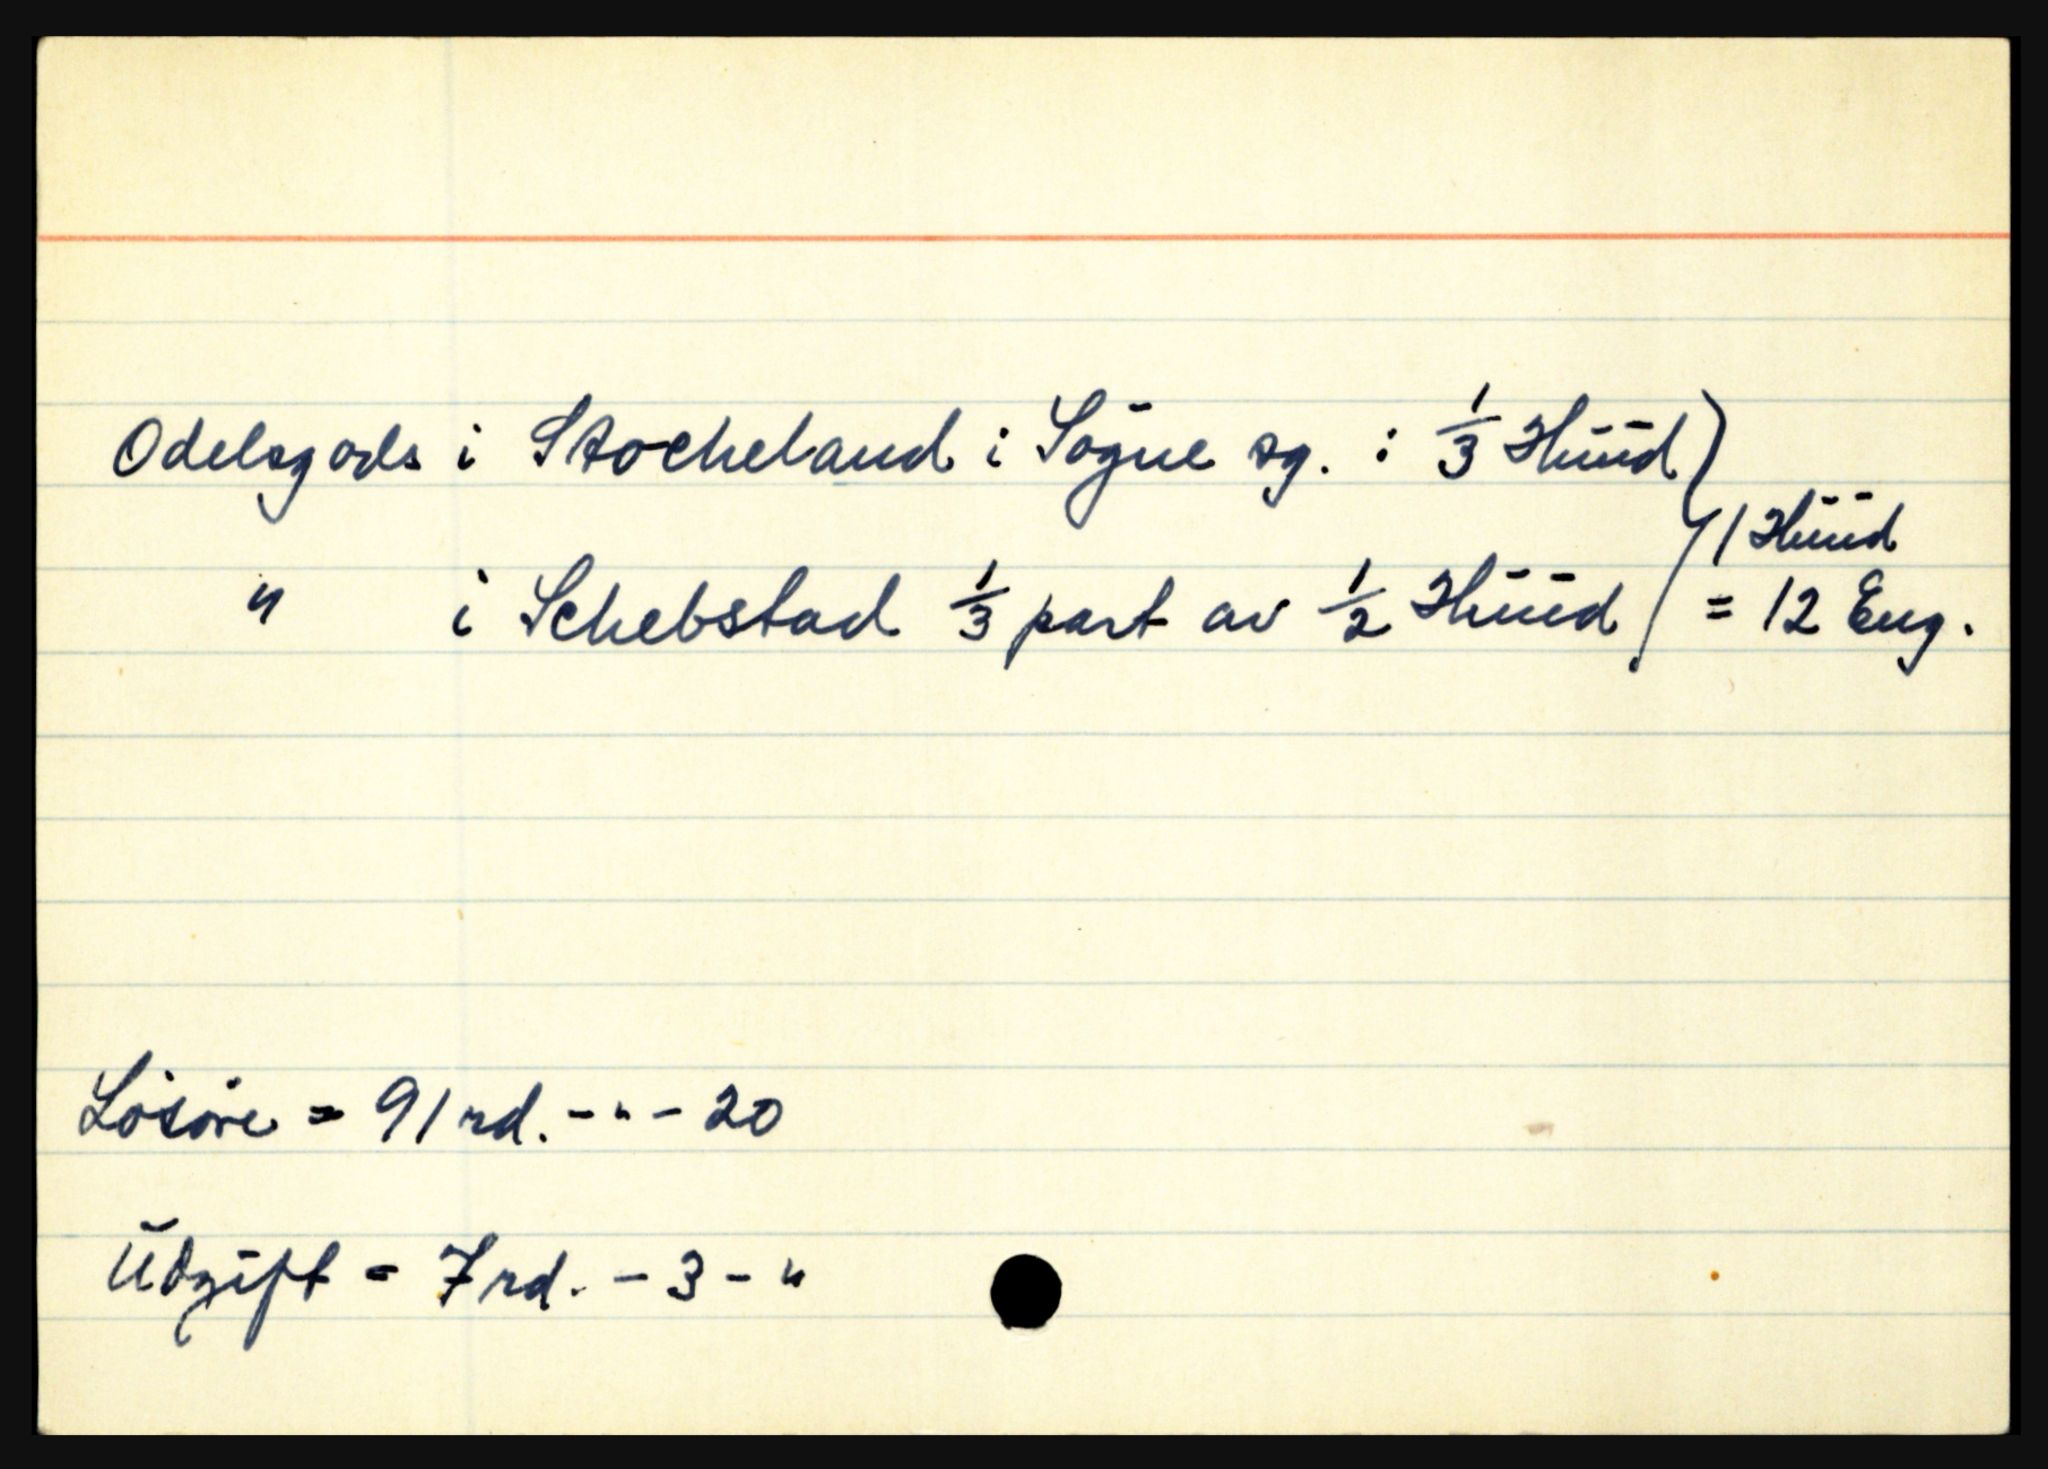 Odelsgods i Stocheland i Sögne sg. : 1/3 Hüüd
" i Schebstad 1/3 part av 1/2 Hüüd
1 Hüüd
= 12 Eng.
Lösöre = 91 rd. - " - 20
Üdgift = 7 rd. - 3 - "